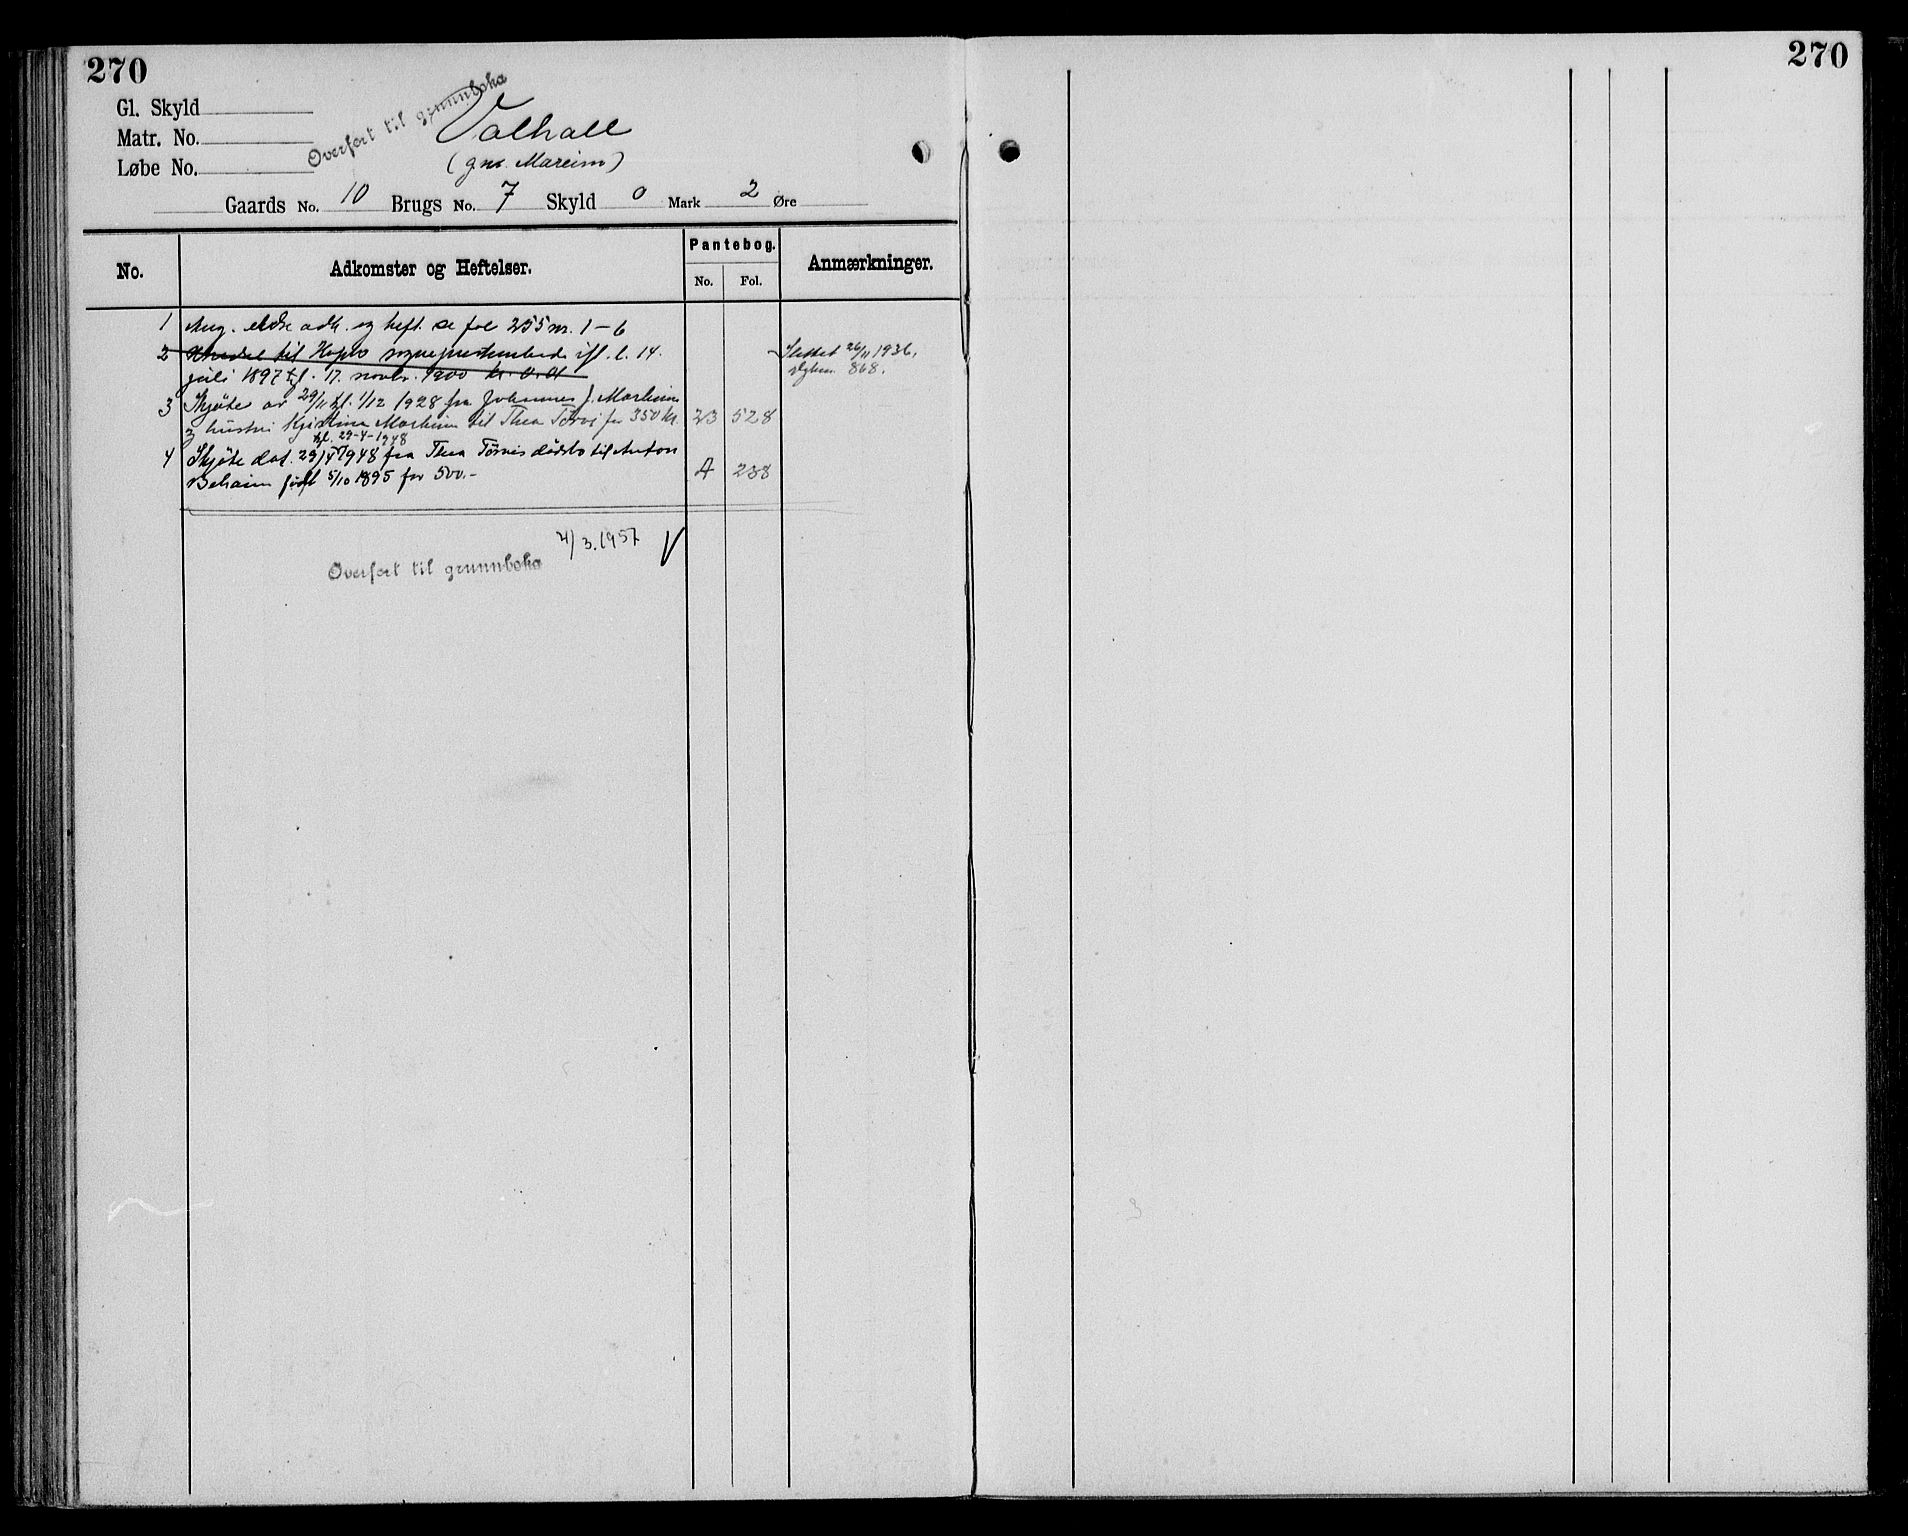 270
270
Gl. Skyld
Matr. No.
Løbe No.
Overført til grunnboka
Valhall
(gnr. Mareim)
Gaards No. 10 Brugs No. 7 Skyld 0 Mark 2 Øre
No.
Adkomster og Heftelser.
Pantebog.
No. Fol.
Anmærkninger.
1 Ang. eldre adk. og heft. se fol 255 nr. 1-6
2 til Hopla ifl. l. 14.
juli 1897 tgl. 17. novbr. 1900
Slettet 26/11 1936.
868.
3 Skjøte av 29/11 tgl. 1/12 1928 fra Johannes J. Marheim
og hustru Marheim til Thea for 350 kr. 23 528
tgl. 29-4-1948
4 Skjøte dat. 1948 fra Thea dødsbo til Anton
født 5/10 1895 for 500.- A 238
3.1957 V
Overført til grunnboka